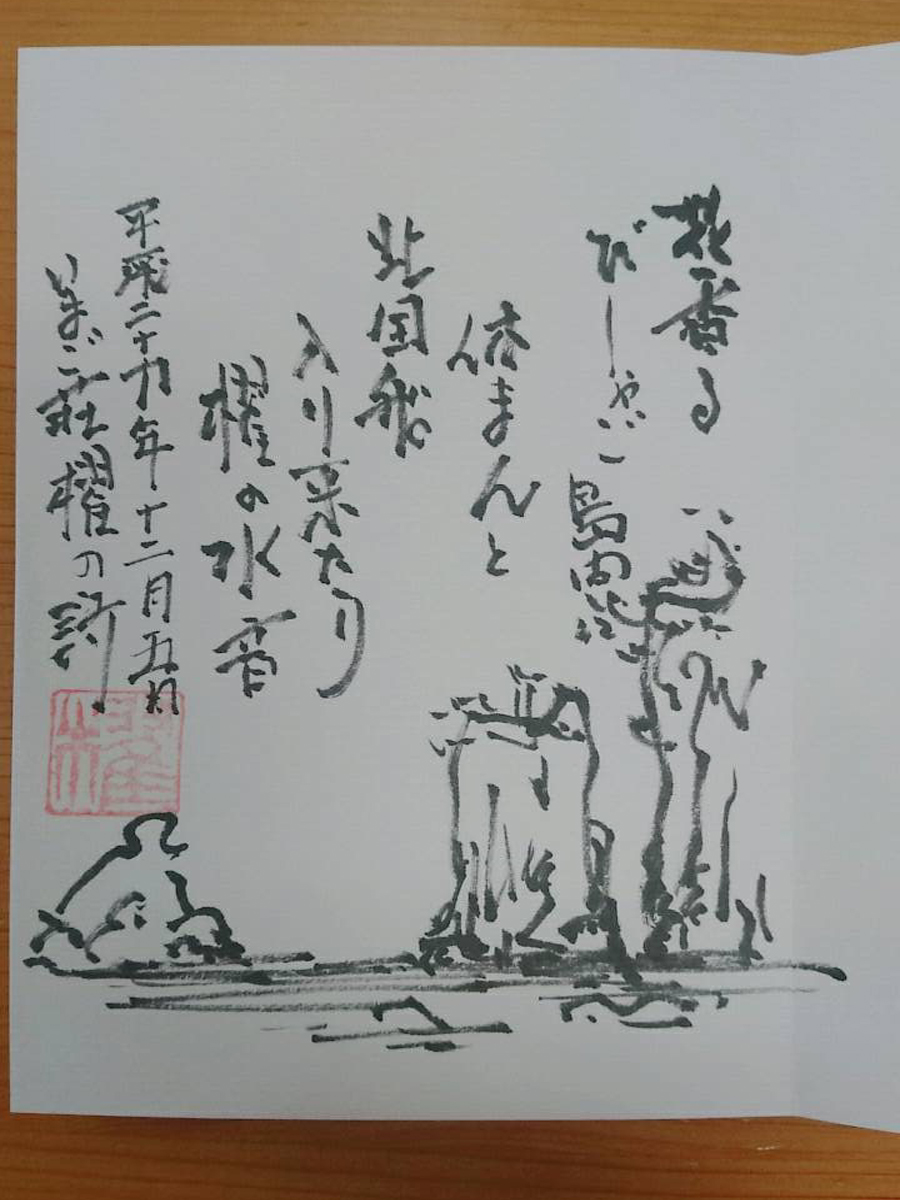 花香る
びしゃご島の恋
休まんと
北国船
入り来たり
櫂の水音
平成二十九年十二月五日
いまご荘櫂の詩